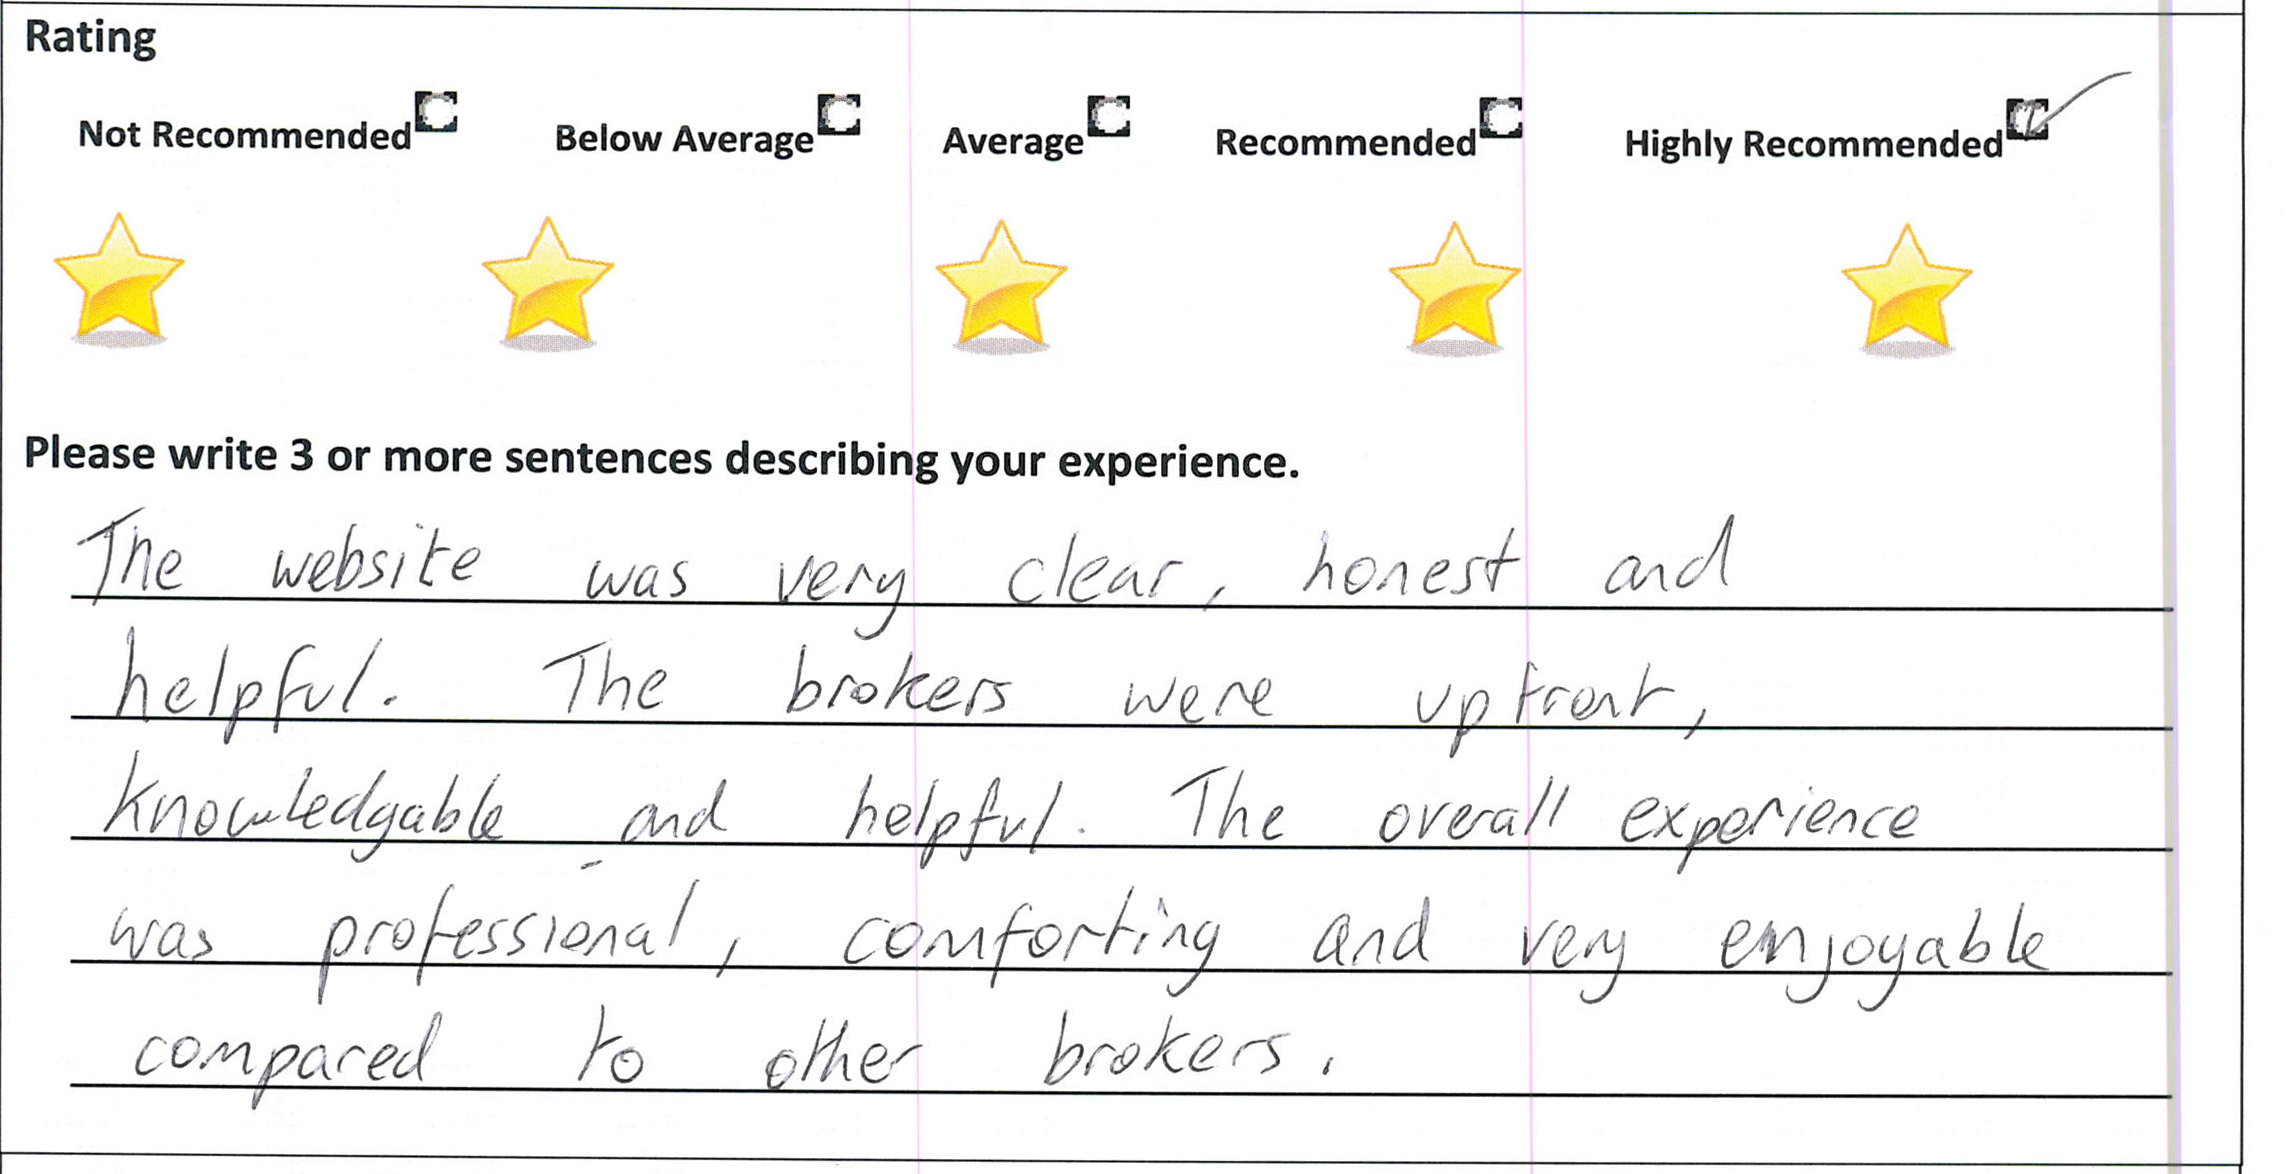 Rating
Not Recommended Below Average Average Recommended Highly Recommended
Please write 3 or more sentences describing your experience.
The website was very clear, honest and
helpful. The brokers were upfront,
knowledgable and helpful. The overall experience
was professional, comforting and very enjoyable
compared to other brokers.